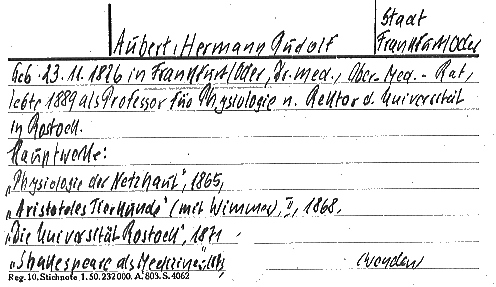 Stadt
Aubert, Hermann Rudolf Frankfurt/Oder
Geb. 23.11.1826 in Frankfurt/Oder, Dr. med., Ober-Med.-Rat,
lebte 1889 als Professor für Physiologie u. Rektor d. Universität
in Rostock.
Hauptwerke:
„Physiologie der Netzhaut", 1865,
„Aristoteles Tierkunde" (mit Wimmer), II, 1868.
„Die Universität Rostock", 1871
„Shakespeare als Mediziner",
Reg. 10. Stichnote 1. 50. 232000. A. 803. S. 4062